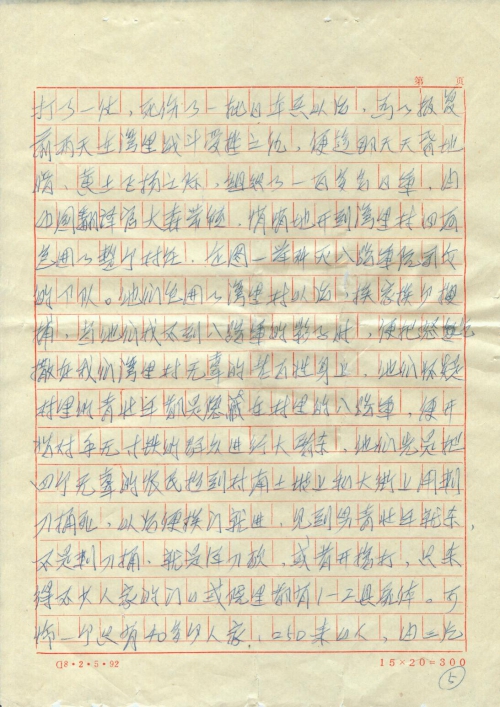 第 页
打了一仗，死伤了一批日车兵以后，为了报复
前两天在湾里战斗受挫之仇，便趁那天天昏地
暗，黄土飞扬之际，组织了一百多名日军，由
中国翻译官大春带领，悄悄地开到湾里村四面
包围了整个村庄，企图一举歼灭八路军
的 队。他们包围了湾里村以后，挨家挨户搜
捕，当他们找不到八路军的影子时，便把怒气
撒在我们湾里村无辜的老百姓身上，他们怀疑
村里的青壮年都是隐藏在村里的八路军，便开
始对手无寸铁的群众进行大屠杀，他们先是把
四个无辜的农民抱到村南土地上和大街上用刺
刀捅死，以后便挨门就进，见到男青壮年就杀，
不是刺刀捅，就是洋刀砍，或者开枪打，只杀
得不少人家的门口或院里都有1-2具死体。可
怜一个只有40多户人家，250来口人，
G8·2·5·92
15×20=300
5